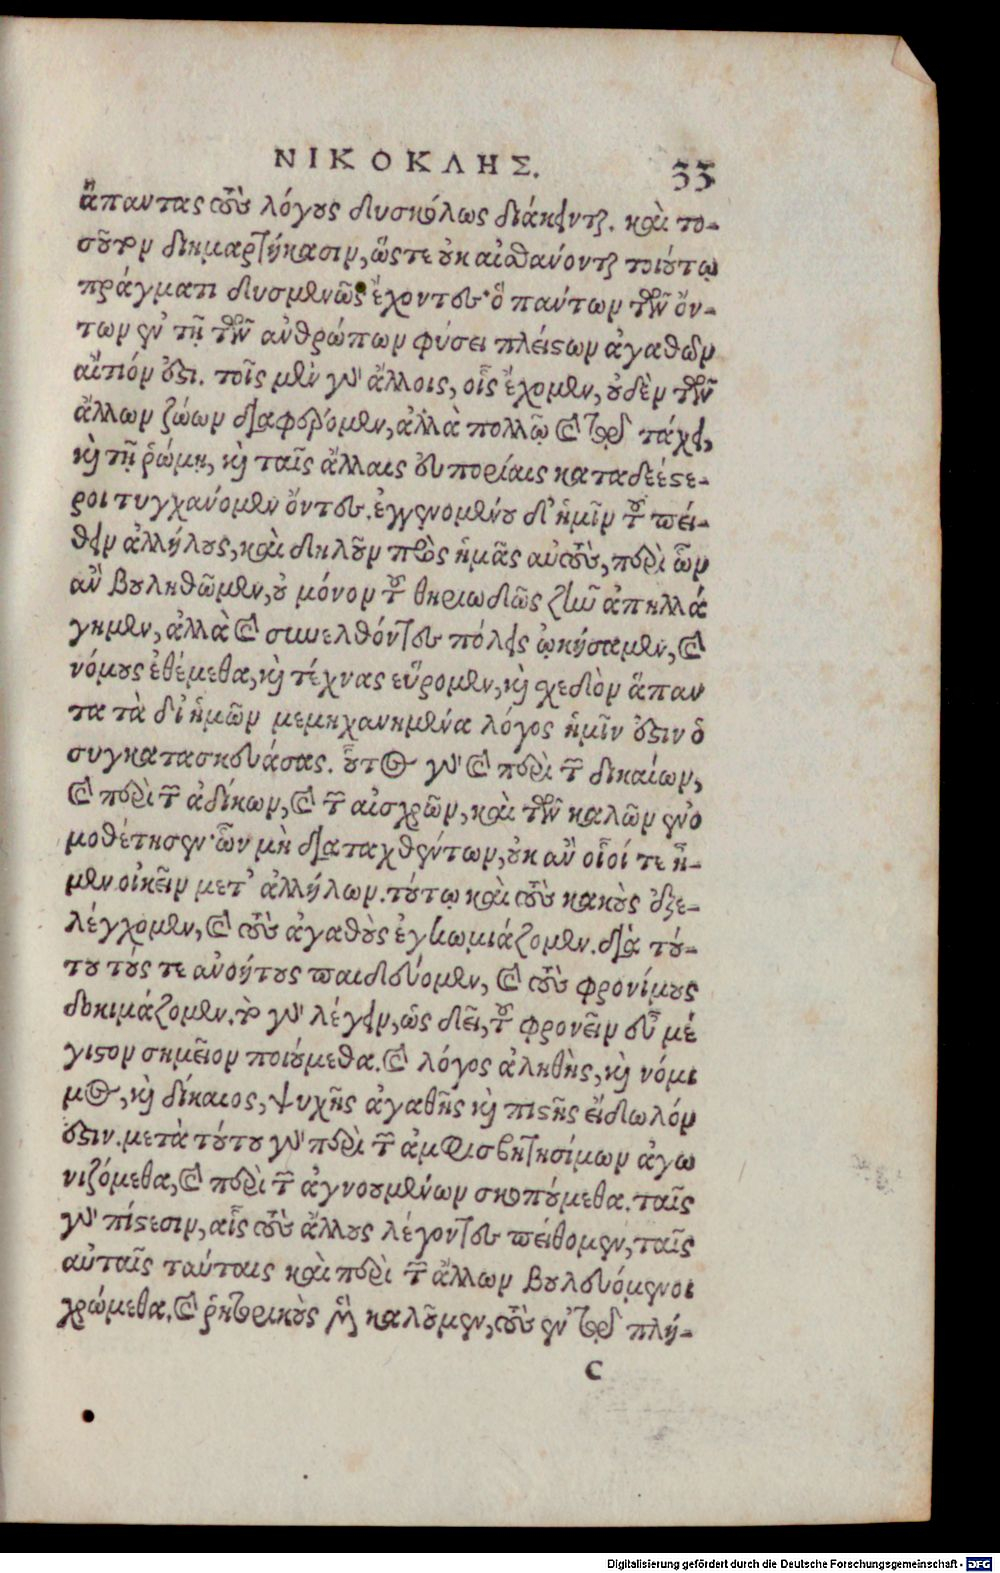 ΝΙΚΟΚΛΗΣ. 33
ἅπαντας τοὺς λόγους δυσκόλως διάκεινται. καὶ το-
σοῦτον διημαρτήκασιν, ὥστε οὐκ αἰσθάνονται τοιούτῳ
πράγματι δυσμενῶς ἔχοντες· ὃ πάντων τῶν ὄν-
των ἐν τῇ τῶν ἀνθρώπων φύσει πλείστων ἀγαθῶν
αἴτιόν ἐστι. τοῖς μὲν γὰρ ἄλλοις, οἷς ἔχομεν, οὐδὲν τῶν
ἄλλων ζώων διαφέρομεν, ἀλλὰ πολλῷ καὶ τῷ τάχει,
καὶ τῇ ῥώμῃ, καὶ ταῖς ἄλλαις εὐπορίαις καταδεέστε-
ροι τυγχάνομεν ὄντες. ἐγγενομένου δ' ἡμῖν τοῦ πεί-
θειν ἀλλήλους, καὶ δηλοῦν πρὸς ἡμᾶς αὐτοὺς, περὶ ὧν
ἂν βουληθῶμεν, οὐ μόνον τοῦ θηριωδῶς ζῆν ἀπηλλά
γημεν, ἀλλὰ καὶ συνελθόντες πόλεις ᾠκήσαμεν, καὶ
νόμους ἐθέμεθα, καὶ τέχνας εὕρομεν, καὶ σχεδὸν ἅπαν
τα τὰ δι' ἡμῶν μεμηχανημένα λόγος ἡμῖν ἐστιν ὁ
συγκατασκευάσας. οὗτος γὰρ καὶ περὶ τῶν δικαίων,
καὶ περὶ τῶν ἀδίκων, καὶ τῶν αἰσχρῶν, καὶ τῶν καλῶν ἐνο
μοθέτησεν· ὧν μὴ διαταχθέντων, οὐκ ἂν οἷοί τε ἦ-
μεν οἰκεῖν μετ' ἀλλήλων. τούτῳ καὶ τοὺς κακοὺς ἐξε-
λέγχομεν, καὶ τοὺς ἀγαθοὺς ἐγκωμιάζομεν. διὰ τού-
του τούς τε ἀνοήτους παιδεύομεν, καὶ τοὺς φρονίμους
δοκιμάζομεν. τὸ γὰρ λέγειν, ὡς δεῖ, τοῦ φρονεῖν εὖ μέ
γιστον σημεῖον ποιούμεθα. καὶ λόγος ἀληθὴς, καὶ νόμι
μος, καὶ δίκαιος, ψυχῆς ἀγαθῆς καὶ πιστῆς εἴδωλόν
ἐστιν. μετὰ τούτου γὰρ περὶ τῶν ἀμφισβητησίμων ἀγω
νιζόμεθα, καὶ περὶ τῶν ἀγνοουμένων σκοπούμεθα. ταῖς
γὰρ πίστεσιν, αἷς τοὺς ἄλλους λέγοντες πείθομεν, ταῖς
αὐταῖς ταύταις καὶ περὶ τῶν ἄλλων βουλευόμενοι
χρώμεθα. καὶ ῥητορικοὺς μὲν καλοῦμεν, τοὺς ἐν τῷ πλή-
C
Digitalisierung gefördert durch die Deutsche Forschungsgemeinschaft - DFG